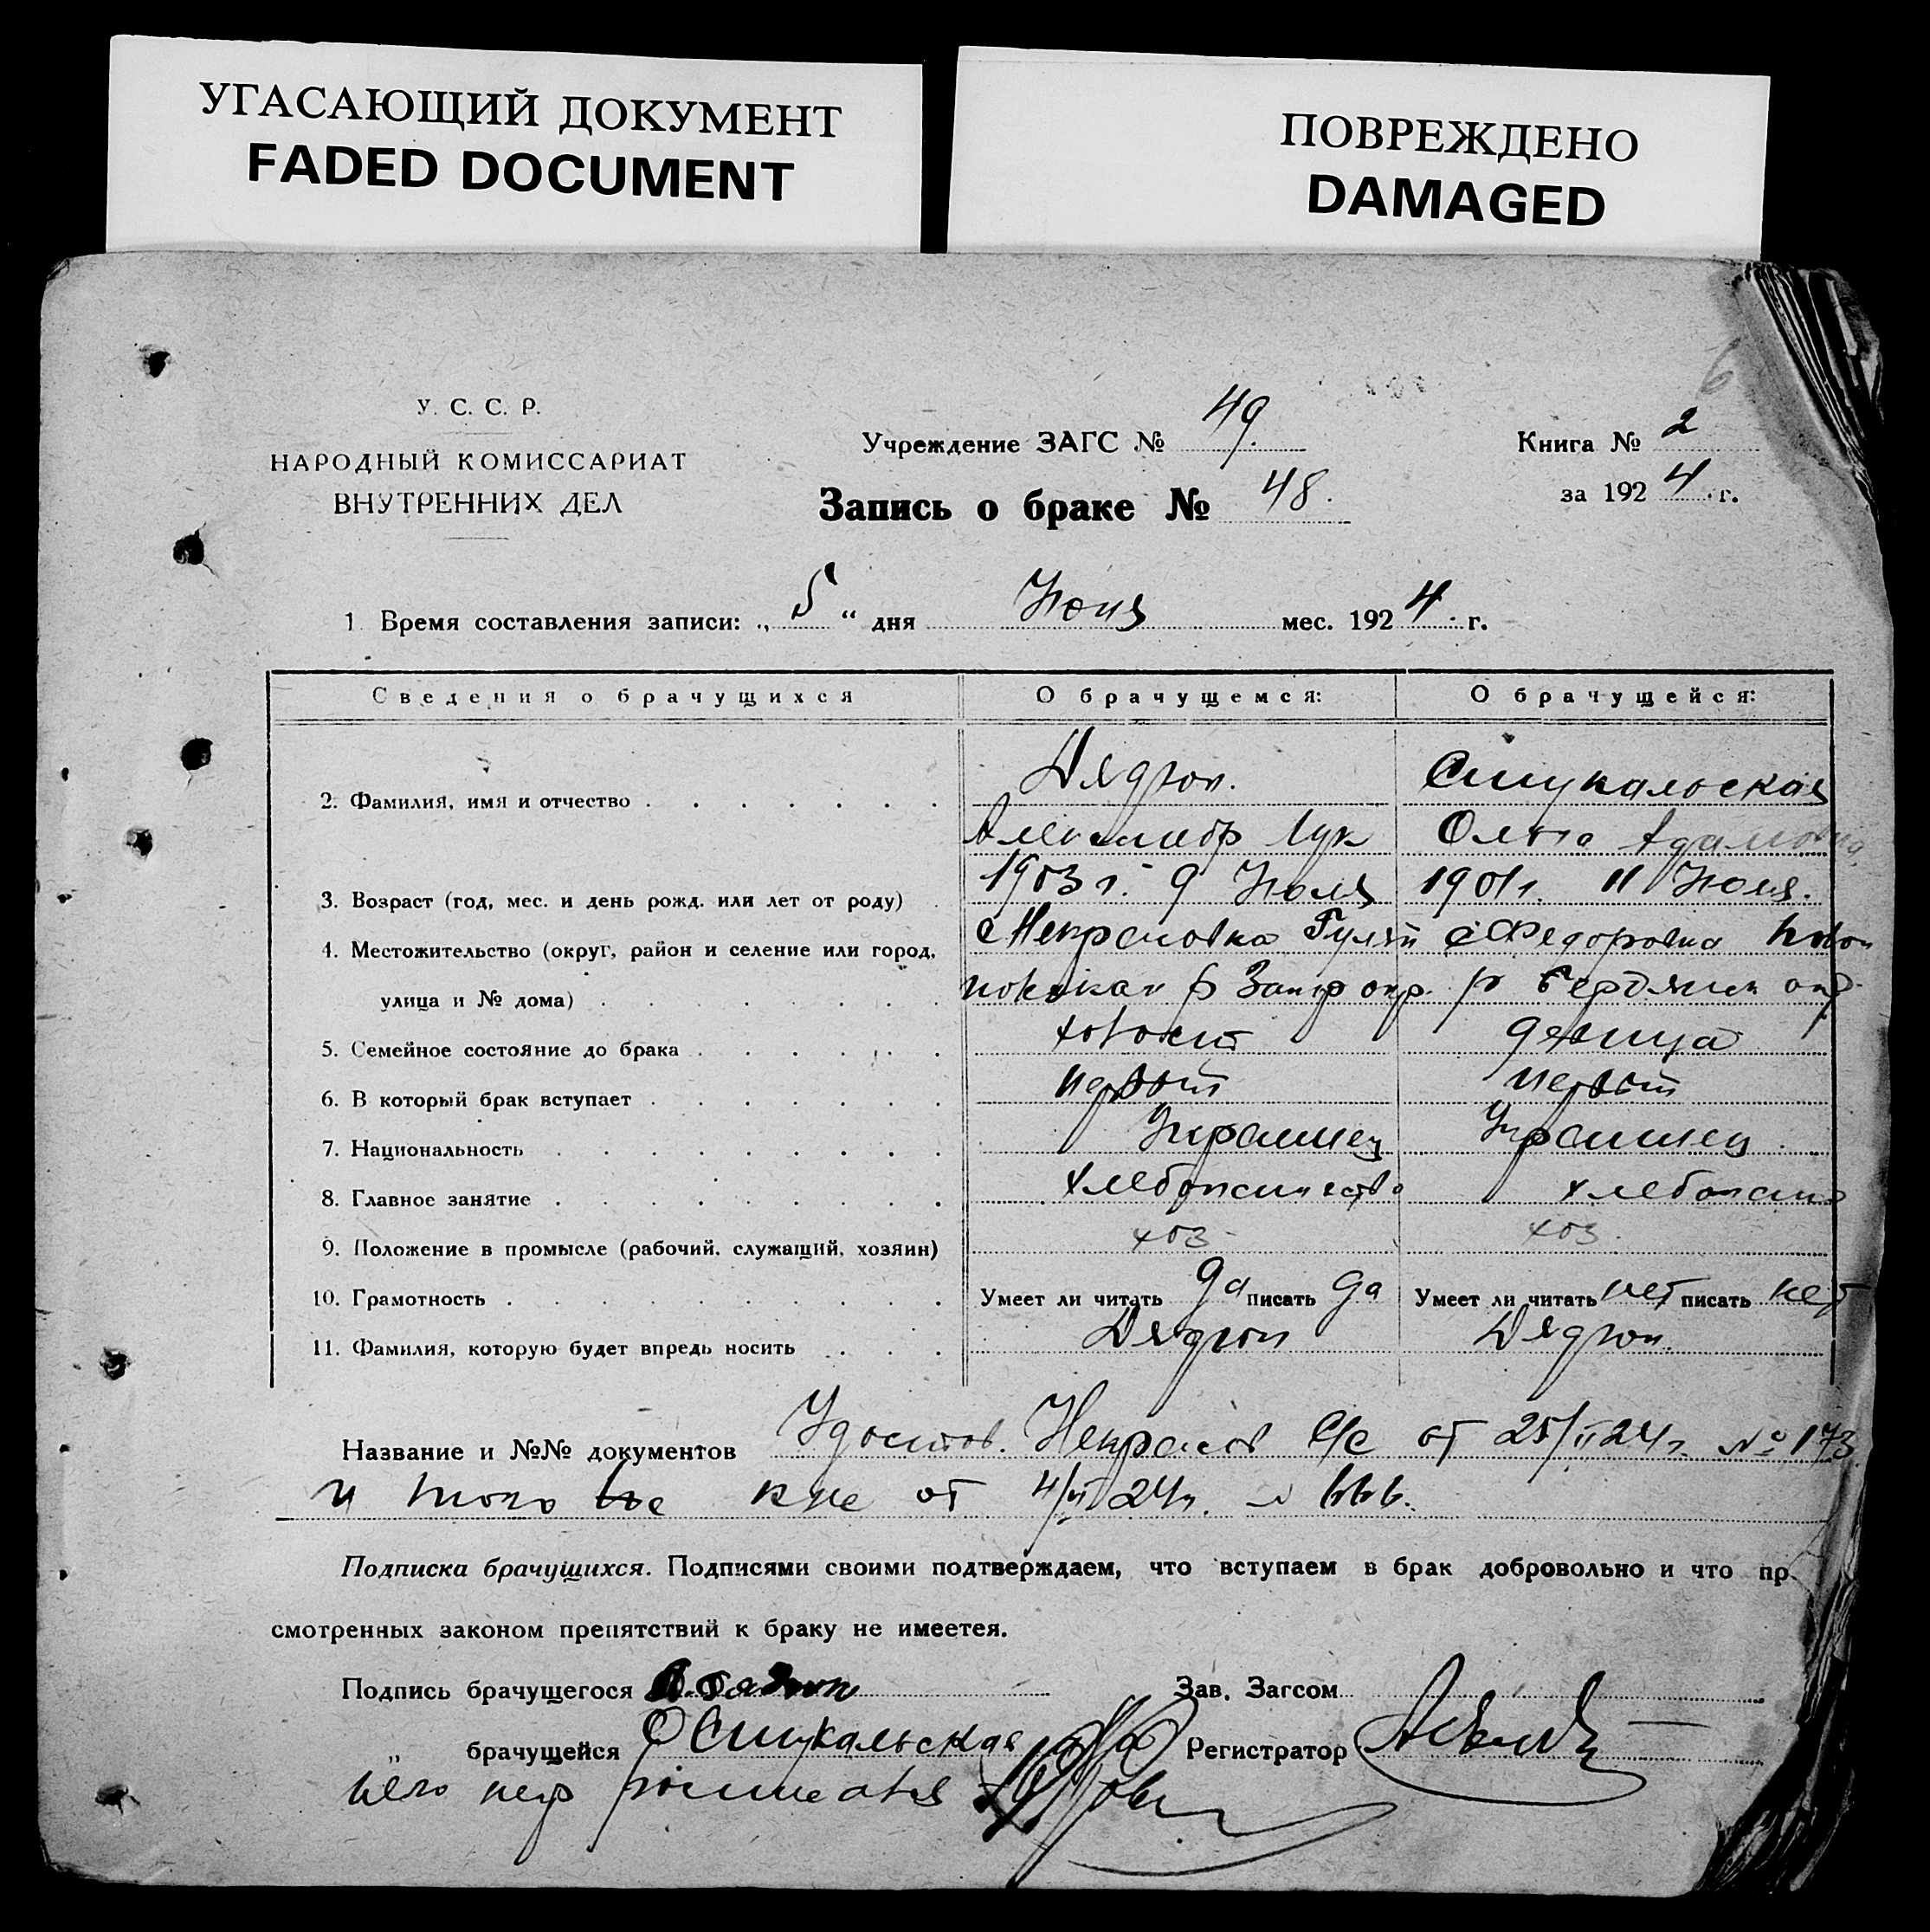 УГАСАЮЩИЙ ДОКУМЕНТ
FADED DOCUMENT
ПОВРЕЖДЕНО
DAMAGED
6
У. С. С. Р.
НАРОДНЫЙ КОМИССАРИАТ
ВНУТРЕННИХ ДЕЛ
Учреждение ЗАГС № 49.
Запись о браке № 48.
Книга № 2
за 1924 г.
1 Время составления записи: „ 5 “ дня Июня мес. 1924 г.
Сведения о брачущихся О брачущемся: О брачущейся:
2. Фамилия, имя и отчество Дядюн. Смукальская
Александр Лук Ольга Адамовна
3. Возраст (год, мес. и день рожд. или лет от роду) 1903 г. 9 Июля 1901 г. 11 Июля.
4. Местожительство (округ, район и селение или город, с Некрасовка Гуляй с Федоровка
улица и № дома) р Запор окр. р Бердянск окр
5. Семейное состояние до брака холост девица
6. В который брак вступает первый первый
7. Национальность Украинец Украинец
8. Главное занятие хлебопашество хлебопаш
9. Положение в промысле (рабочий, служащий, хозяин) хоз хоз.
10. Грамотность Умеет ли читать да писать да Умеет ли читать нет писать нет
11. Фамилия, которую будет впредь носить Дядюн Дядюн.
Название и №№ документов Удостов. Некрасов С/с от 25/II 24 г. № 173
и того же от 4/VI 24 г. № 666.
Подписка брачущихся. Подписями своими подтверждаем, что вступаем в брак добровольно и что пр
смотренных законом препятствий к браку не имеется.
Подпись брачущегося А. Дядюн Зав. Загсом
„ брачущейся О Смукальская Регистратор